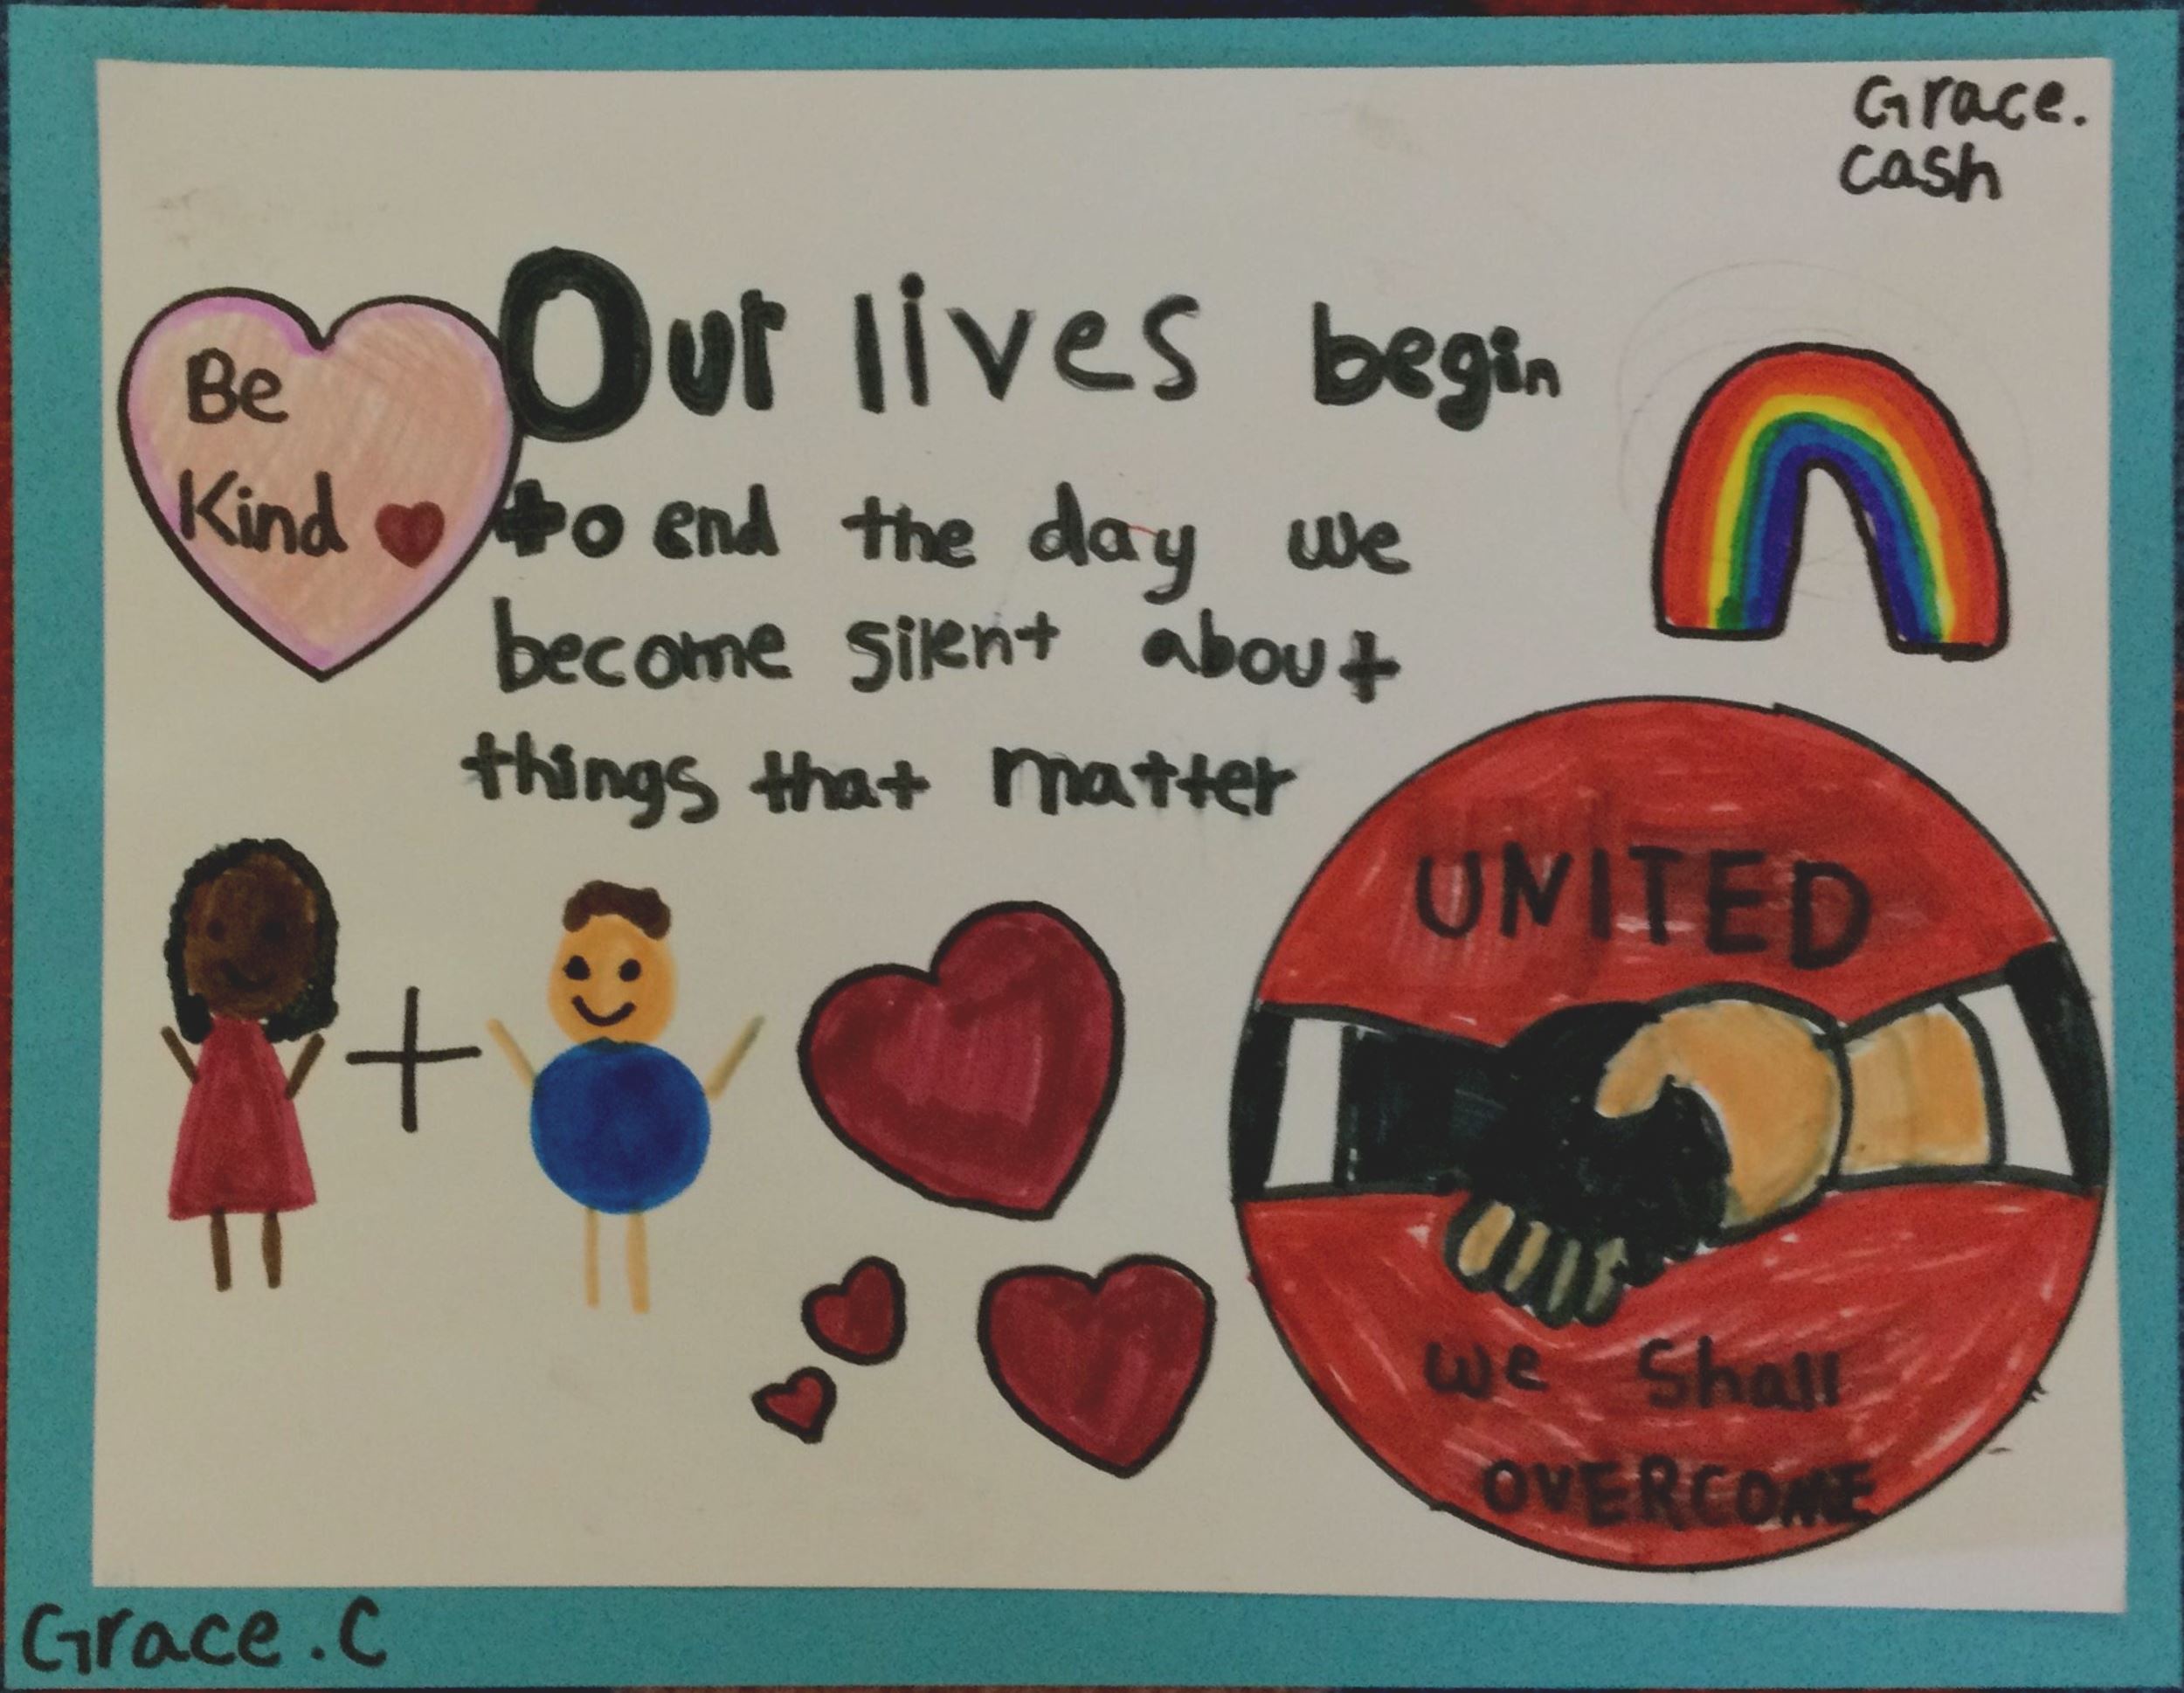 Grace.
cash
Be
Kind
Our lives begin
to end the day we
become silent about
things that matter
UNITED
we Shall
OVERCOME
Grace.C